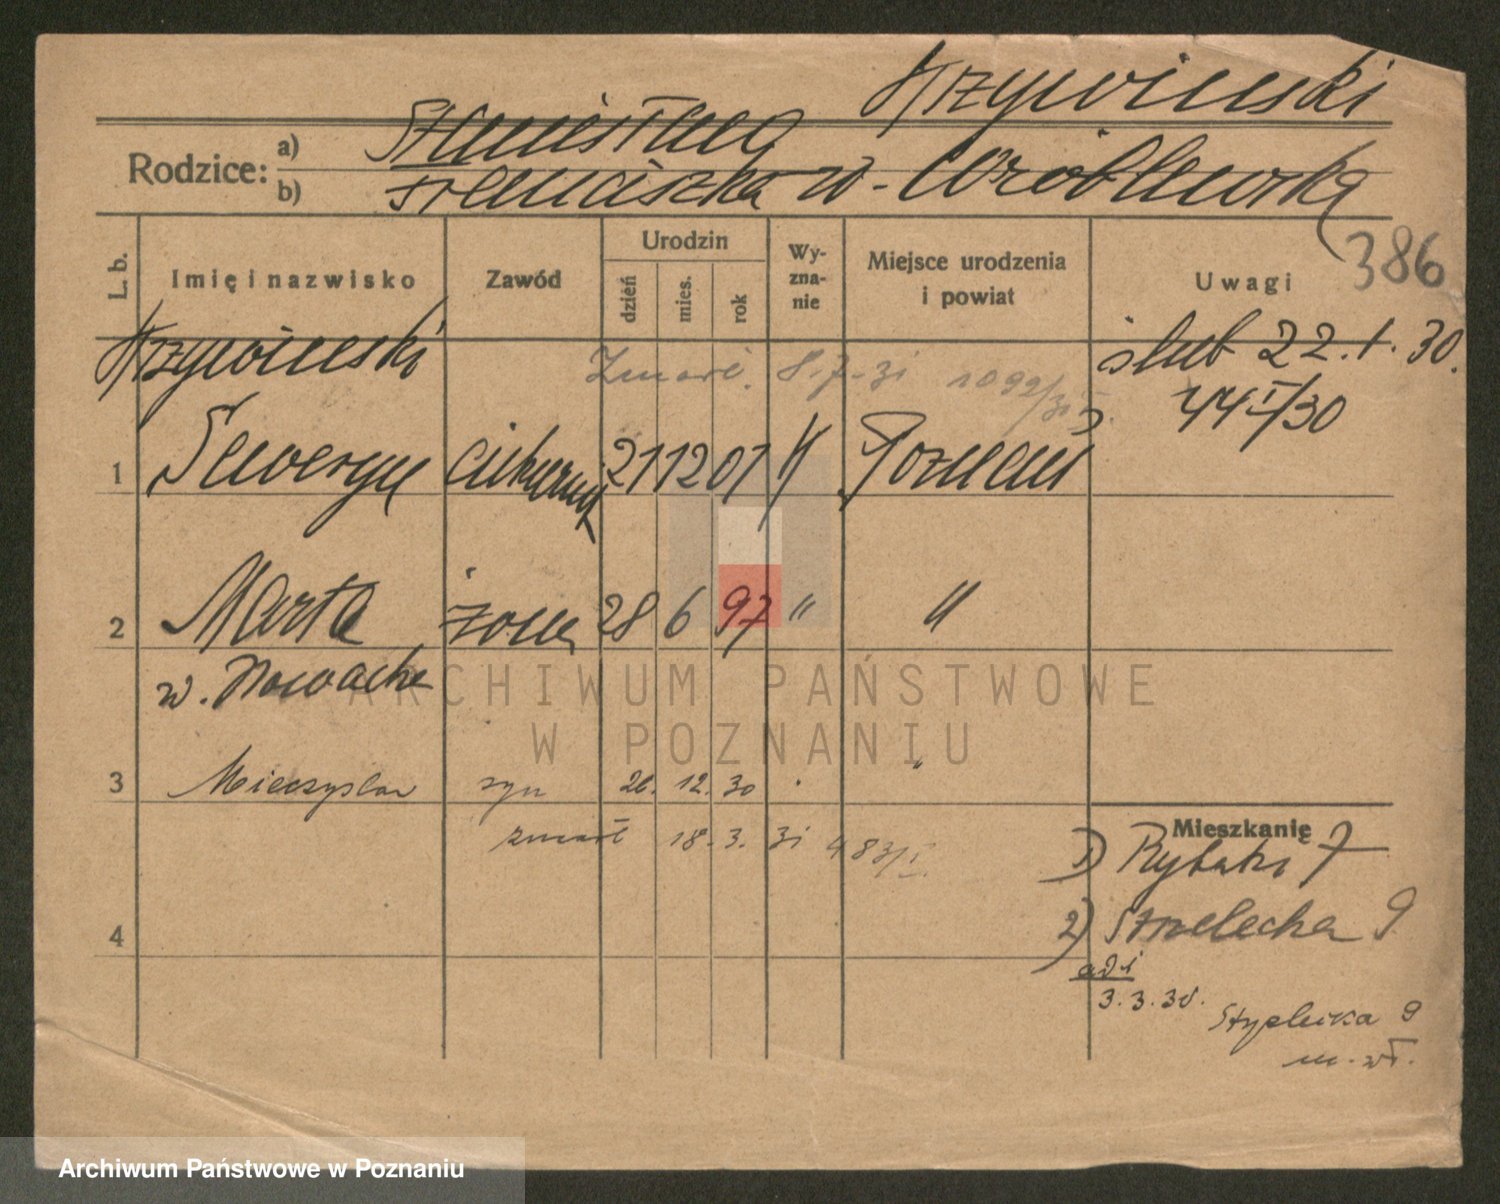 Krzywiński
Rodzice:
a) Stanisław
b) Franciszka w. Wróblewska
386
L. b.
Imię i nazwisko
Zawód
Urodzin
dzień
mies.
rok
Wy-
zna-
nie
Miejsce urodzenia
i powiat
Uwagi
Krzywiński
Zmarł. 8.7.31 1092/31
ślub 22.1.30.
44 I/30
1 Seweryn cukiernik 21 12 01 K Poznań
2 Marta żona 28 6 97 " "
w. Nowacka
ARCHIWUM PAŃSTWOWE
W POZNANIU
3 Mieczysław syn 26. 12. 30 "
zmarł 18. 3. 31 483/I
Mieszkanie
1) Rybaki 7
4
2) Strzelecka 9
3.3.30.
9
m. wł.
Archiwum Państwowe w Poznaniu